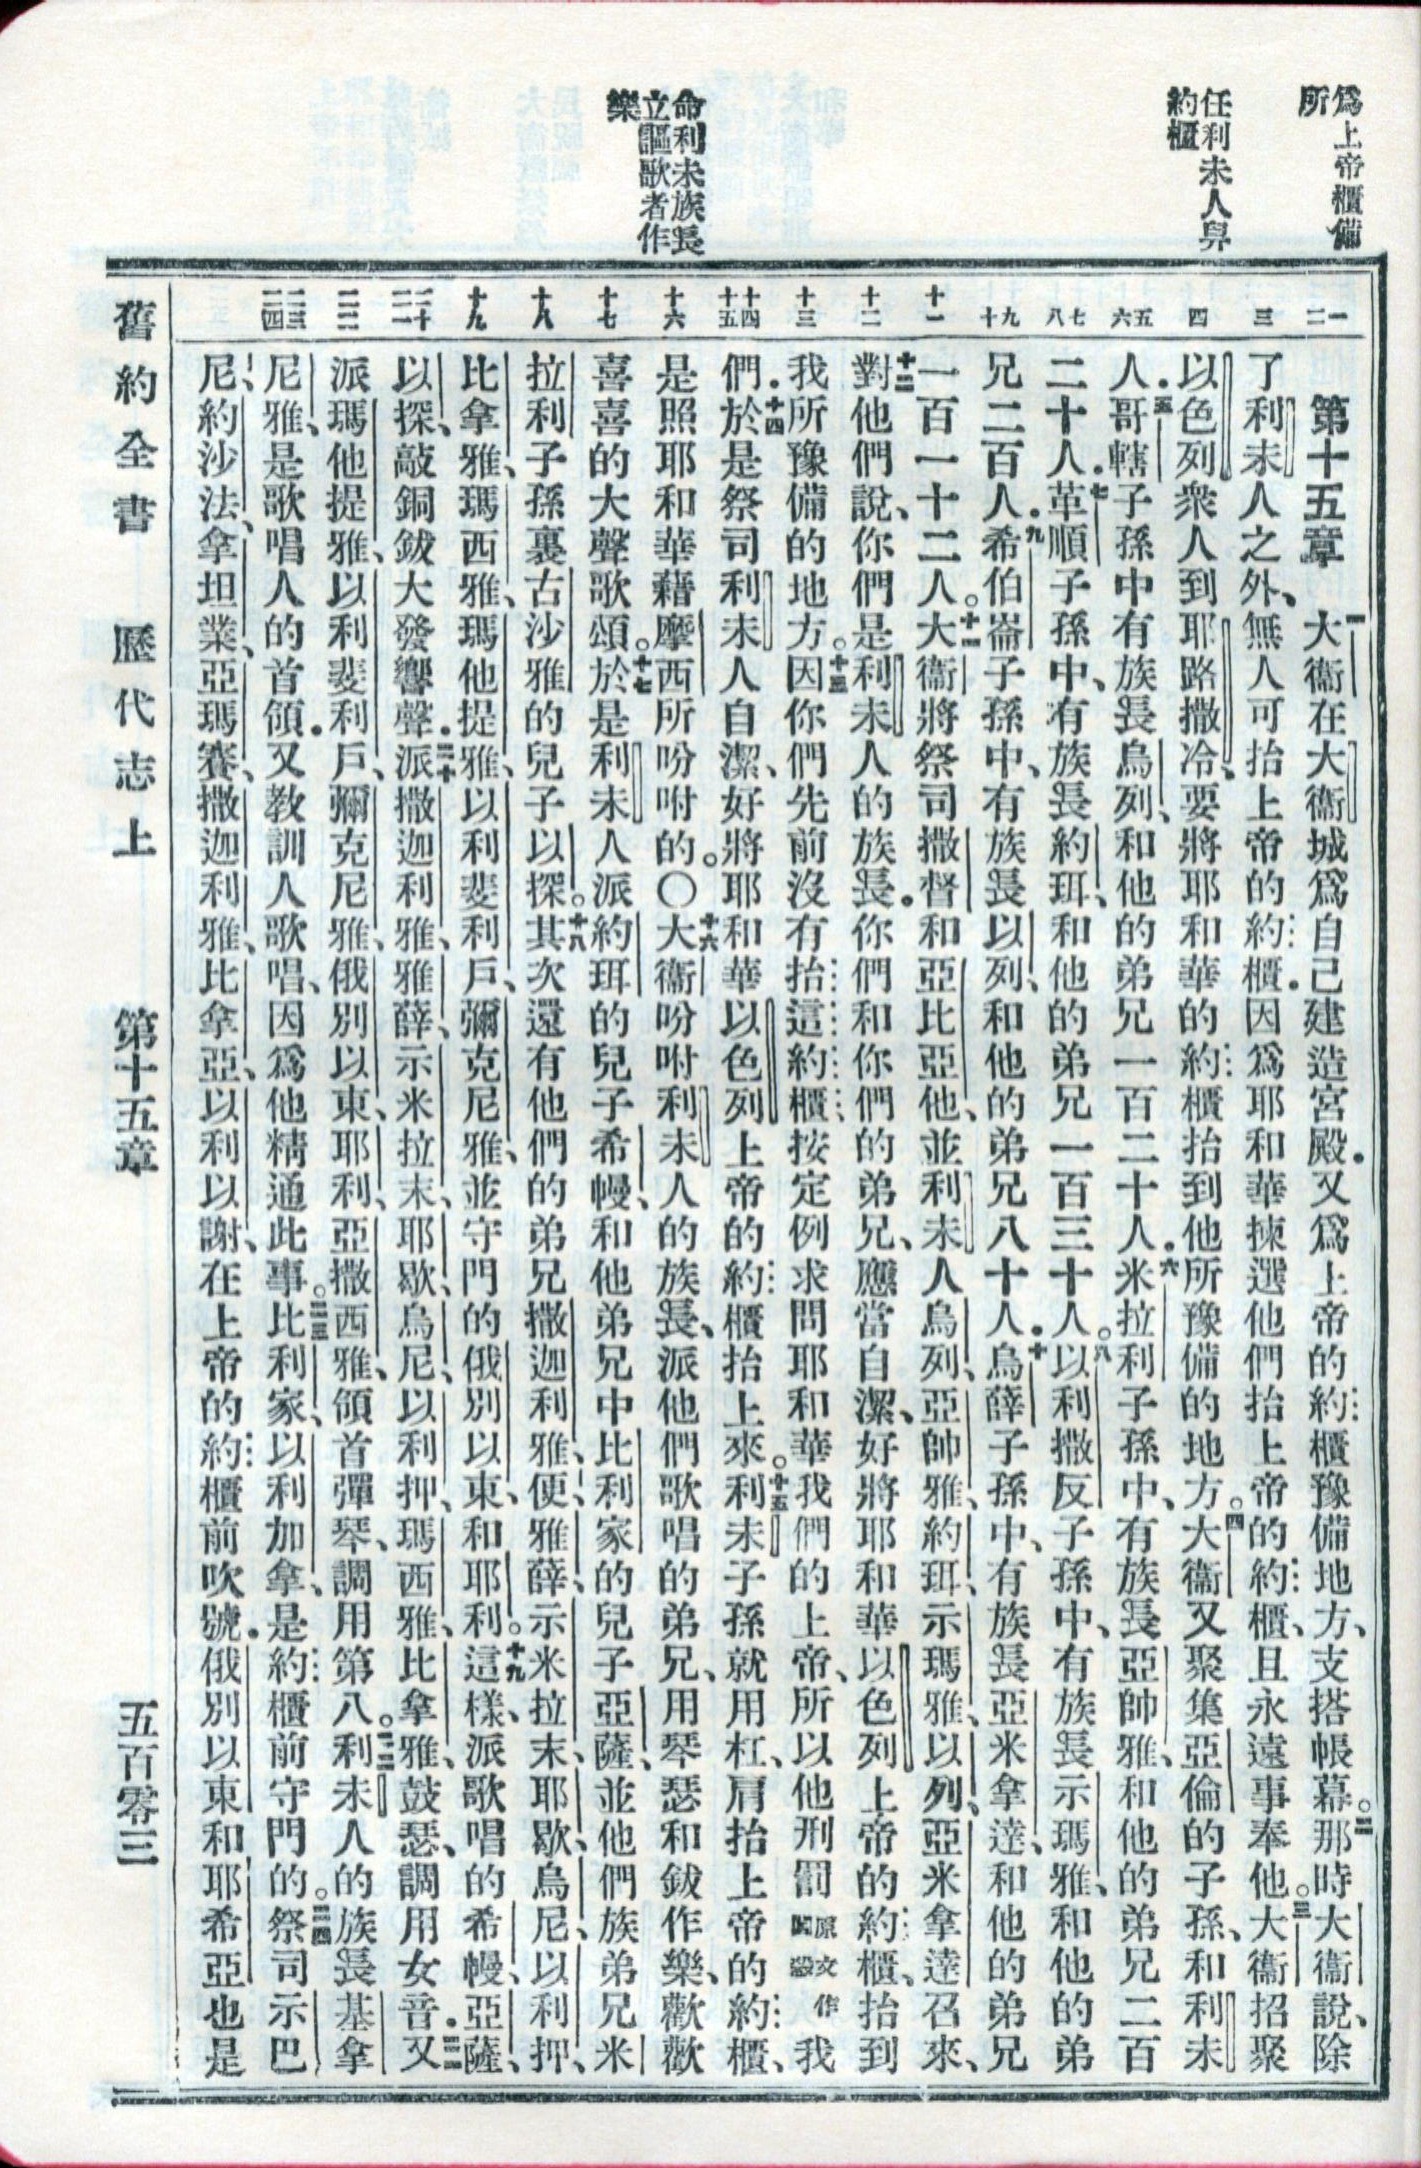 爲上帝櫃備
所
任利未人舁
約櫃
命利未族長
立謳歌者作
樂
一 二
三
四
五 六
七 八
九 十
十一
十二
十三
十四 十五
十六
十七
十八
十九
二十 二一
二二
二三 二四
第十五章 一大衞在大衞城爲自己建造宮殿．又爲上帝的約櫃豫備地方、支搭帳幕。二那時大衞說、除
了利未人之外、無人可抬上帝的約櫃．因爲耶和華揀選他們抬上帝的約櫃、且永遠事奉他。三大衞招聚
以色列衆人到耶路撒冷、要將耶和華的約櫃抬到他所豫備的地方。四大衞又聚集亞倫的子孫、和利未
人．五哥轄子孫中有族長烏列、和他的弟兄一百二十人．六米拉利子孫中、有族長亞帥雅、和他的弟兄二百
二十人．七革順子孫中、有族長約珥、和他的弟兄一百三十人。八以利撒反子孫中、有族長示瑪雅、和他的弟
兄二百人．九希伯崙子孫中、有族長以列、和他的弟兄八十人．十烏薛子孫中、有族長亞米拿達、和他的弟兄
一百一十二人。十一大衞將祭司撒督和亞比亞他、並利未人烏列、亞帥雅、約珥、示瑪雅、以列、亞米拿達召來、
十二對他們說、你們是利未人的族長．你們和你們的弟兄、應當自潔、好將耶和華以色列上帝的約櫃、抬到
我所豫備的地方。十三因你們先前沒有抬這約櫃、按定例求問耶和華我們的上帝、所以他刑罰原文作闖殺我
們．十四於是祭司利未人自潔、好將耶和華以色列上帝的約櫃抬上來。十五利未子孫就用杠、肩抬上帝的約櫃、
是照耶和華藉摩西所吩咐的。〇十六大衞吩咐利未人的族長、派他們歌唱的弟兄、用琴瑟和鈸作樂、歡歡
喜喜的大聲歌頌。十七於是利未人派約珥的兒子希幔、和他弟兄中比利家的兒子亞薩、並他們族弟兄米
拉利子孫裏古沙雅的兒子以探。十八其次還有他們的弟兄撒迦利雅、便、雅薛、示米拉末、耶歇、烏尼、以利押、
比拿雅、瑪西雅、瑪他提雅、以利斐利戶、彌克尼雅、並守門的俄別以東、和耶利。十九這樣、派歌唱的希幔、亞薩、
以探、敲銅鈸大發響聲．二十派撒迦利雅、雅薛、示米拉末、耶歇、烏尼、以利押、瑪西雅、比拿雅、鼓瑟、調用女音．二一又
派瑪他提雅、以利斐利戶、彌克尼雅、俄別以東、耶利、亞撒西雅、領首彈琴、調用第八。二二利未人的族長基拿
尼雅、是歌唱人的首領．又教訓人歌唱、因爲他精通此事。二三比利家、以利加拿、是約櫃前守門的。二四祭司示巴
尼、約沙法、拿坦業、亞瑪賽、撒迦利雅、比拿亞、以利以謝、在上帝的約櫃前吹號．俄別以東和耶希亞也是
舊約全書 歷代志上 第十五章 五百零三